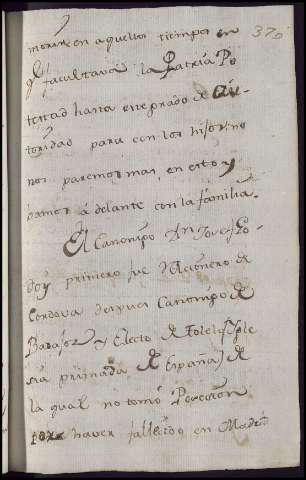 370
en aquellos tiempos en
q facultava la Patria Po
testad hasta este grado de Au-
toridad para con los hijos: no
nos paremos mas, en esto y
bamos á delante con la familia.
El Canonigo Dn Josef Go-
doy primero fue Racionero de
Cordova despues Canonigo de
Badajoz y Electo de Toledo (Ygle
sia primada de España) de
la qual no tomó Posesion
por haver fallecido en Madrid